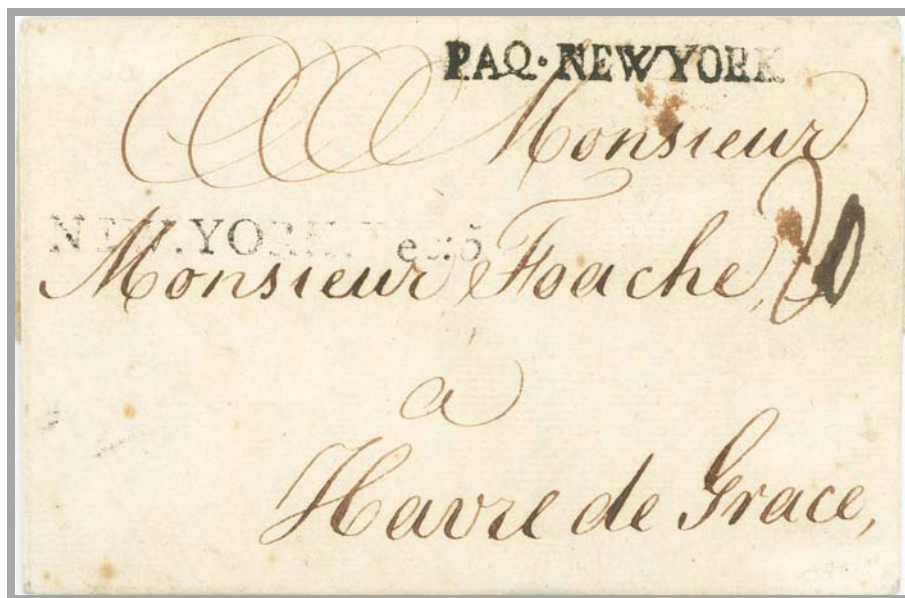 PAQ·NEWYORK
Monsieur
NEW.YORK.
Monsieur Foache,
à
Havre de Grace,